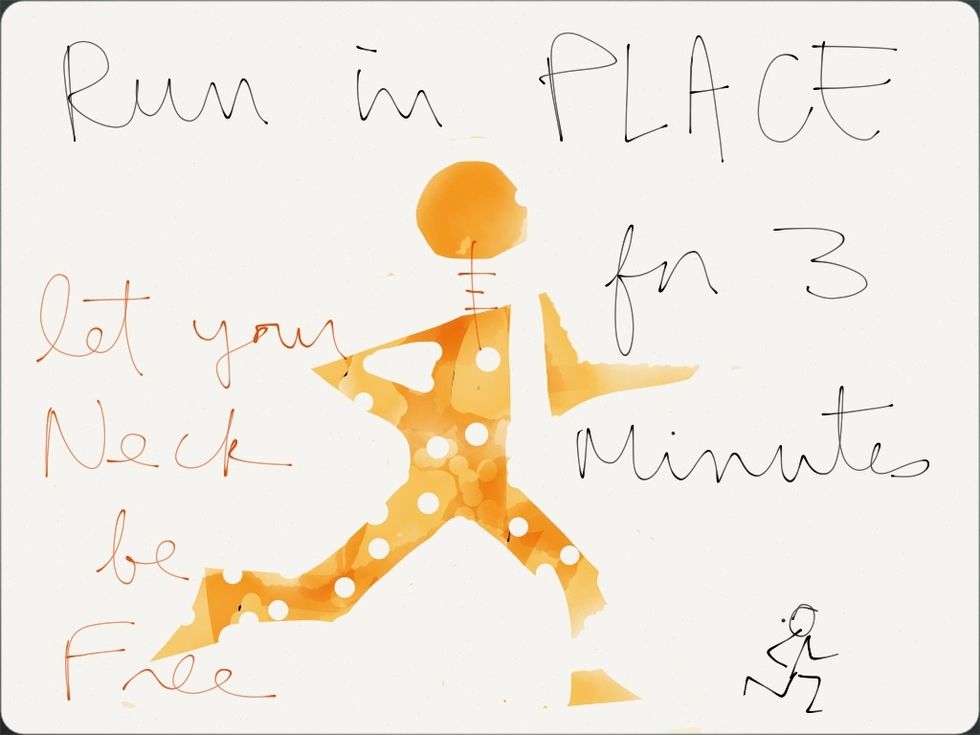 Run in PLACE
for 3
Minutes
let your
Neck
be
Free